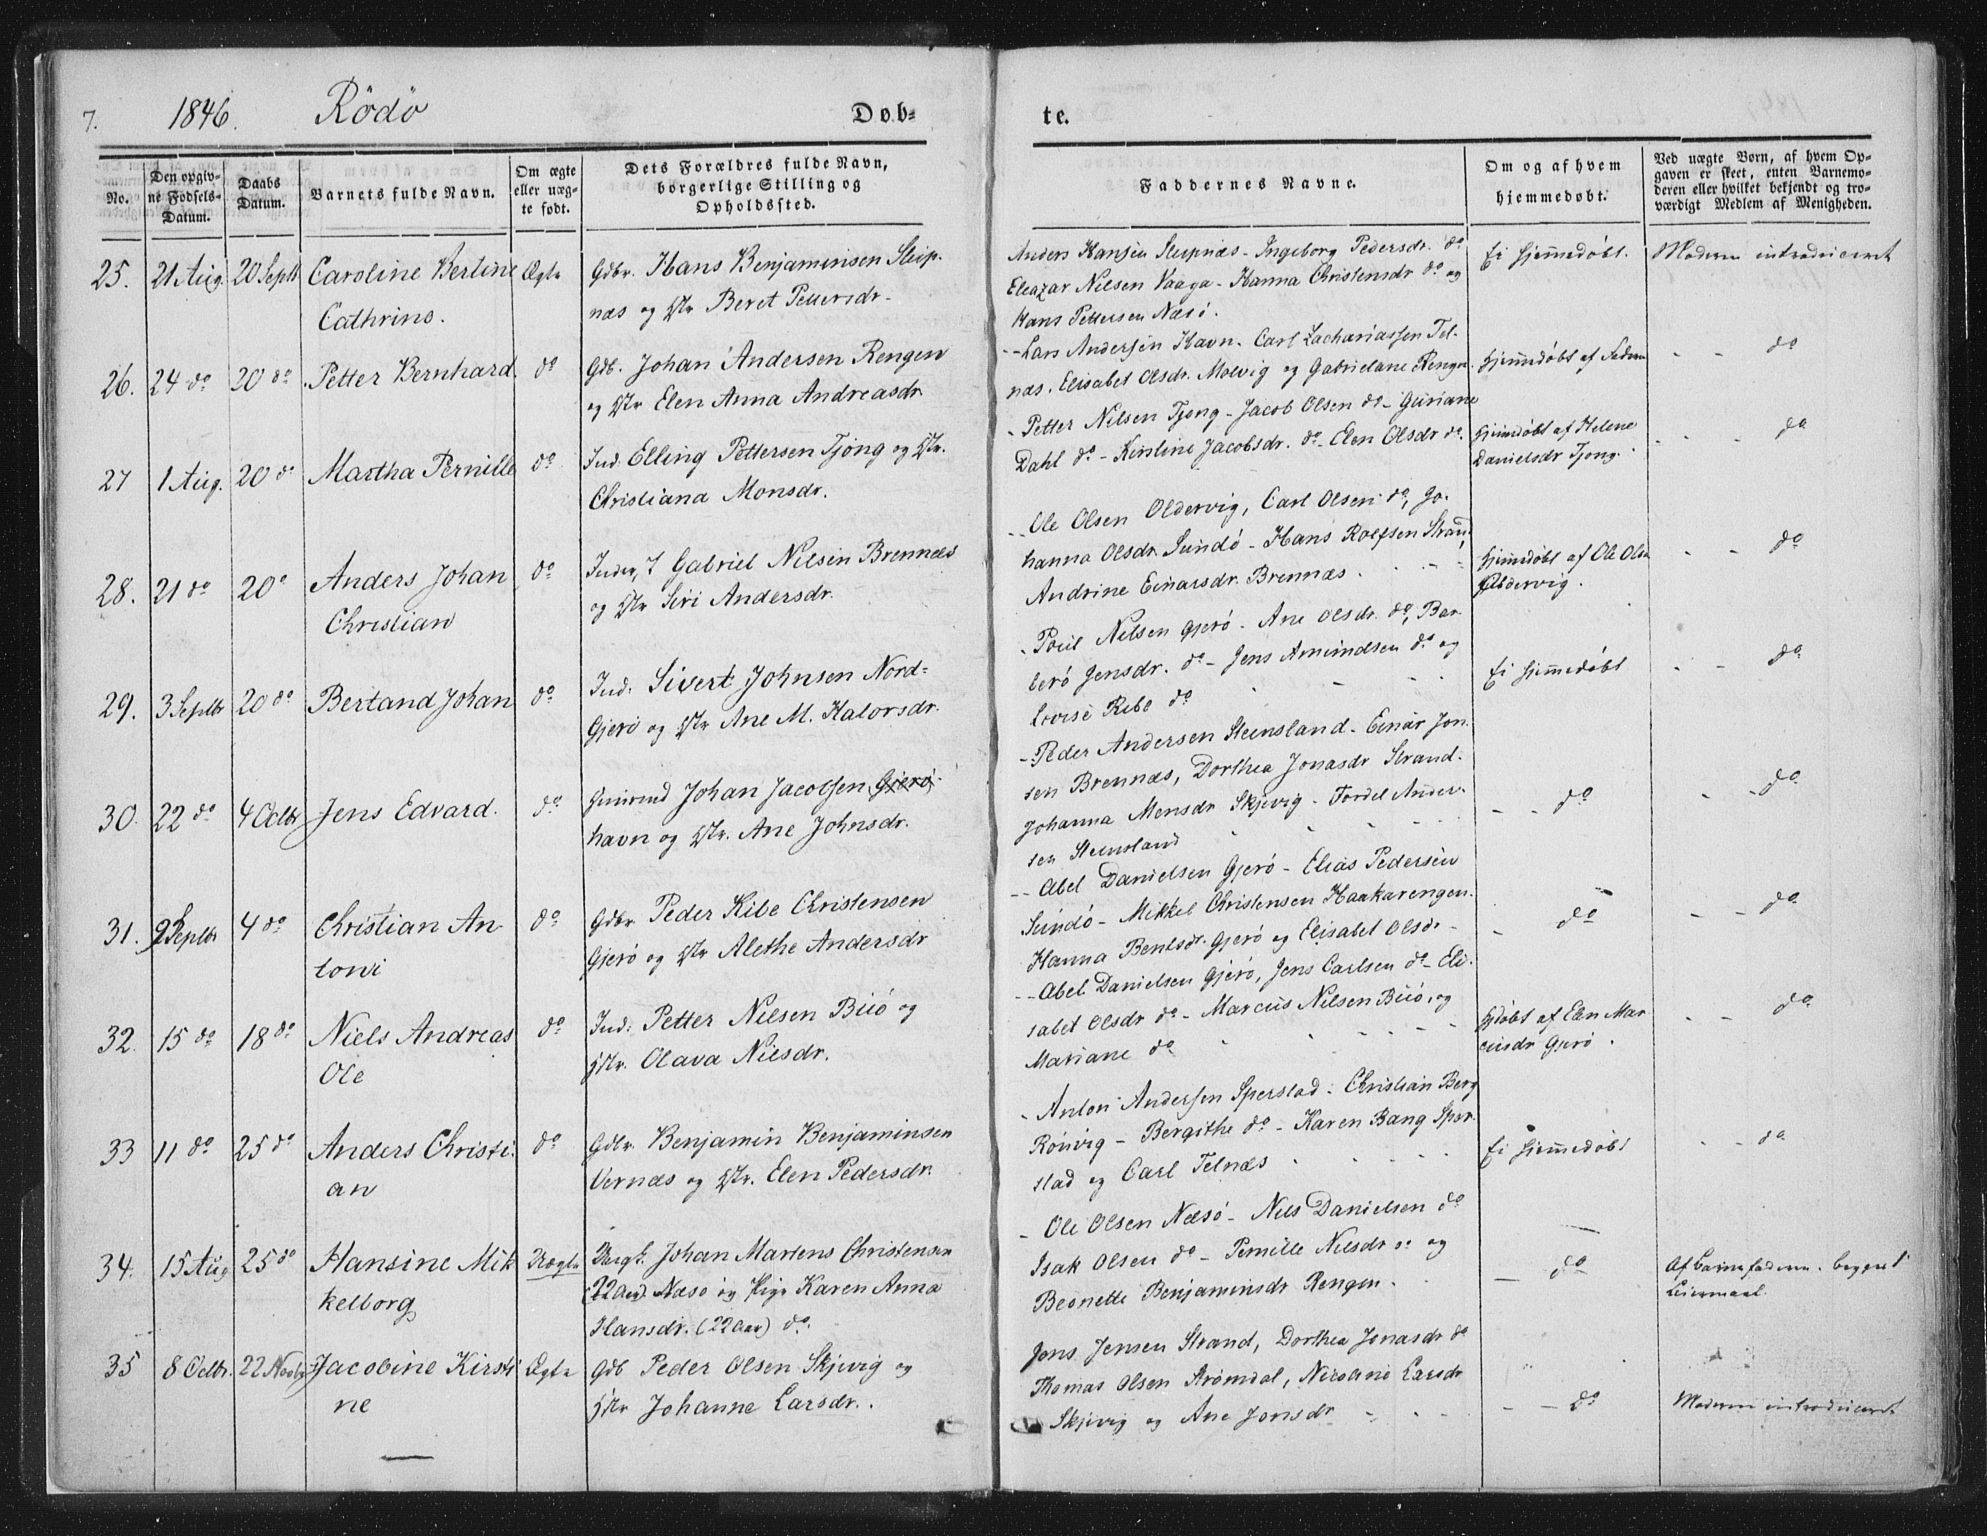 7. 1846. Rödö Døb- te.
No.
Den opgiv-
ne Fødsels-
Datum.
Daabs
Datum.
Barnets fulde Navn.
Om ægte
eller uæg-
te født.
Dets Forældres fulde Navn,
borgerlige Stilling og
Opholdssted.
Faddernes Navne.
Om og af hvem
hjemmedøbt.
Ved uægte Børn, af hvem Op-
gaven er skeet, enten Barnemo-
deren eller hvilket bekjendt og tro-
værdigt Medlem af Menigheden.
25. 21 Aug. 20 Septb Caroline Bertine Ægte Gdbr. Hans Benjaminsen Sleip-
Cathrine.
næs og Hr Beret Pettersdr.
Anders Hansen Sleipnæs - Ingeborg Pedersdr. do
Eleazar Nilsen Vaaga - Hanna Christensdr do og
Hans Pettersen Næsö.
Ei hjemmedöbt. Moderen introduceret
26. 24 do 20 do Petter Bernhard. do Gdb. Johan Andersen Rengen
og Hr Elen Anna Andreasdr.
- Lars Andersen Havn - Carl Zachariassen Tel-
næs. Elisabet Olsdr. Molvig og Gabrielane Rengen.
Hjemmedöbt af Faderen - - do
27 1 Aug. 20 do Martha Pernille do Ind. Elling Pettersen Tjong og Hr.
Christiana Monsdr.
- Petter Nilsen Tjong - Jacob Olsen do - Guriane
Dahl do - Kirstine Jacobsdr. do - Elen Olsdr do.
Hjemdöbt af Helene
Danielsdr Tjong.
- - do
28. 21 do 20 do Anders Johan do Inder, Gabriel Nilsen Brennæs
Christian
og Hr Siri Andersdr.
- Ole Olsen Oldervig, Carl Olsen do, Jo-
hanna Olsdr. Sundö - Hans Rolfsen Strand,
Andrine Einarsdr. Brennæs.
Hjemdöbt af Ole Olsen
Oldervig.
- - do
29. 3 Septbr 20 do Bertand Johan do Ind. Sivert Johnsen Nord-
Gjerö og Hr Ane M. Halorsdr.
- Poul Nilsen Gjerö - Ane Olsdr. do, Bar-
berö Jensdr. do - Jens Amundsen do og
Lovise Ribe do
Ei hjemmedöbt - - do
30. 22 do 4 Octbr Jens Edvard. do Johan Jacobsen Gjerö-
havn og Hr. Ane Johnsdr.
- Peder Andersen Steensland - Einar Jon-
sen Brennæs, Dorthea Jonasdr Strand -
Johanna Monsdr Skjevig - Tordel Ander-
sen Steensland
- - do - - do
31. 2 Septbr 4 do Christian An- do Gdbr Peder Ribe Christensen
toni
Gjerö og Hr Alethe Andersdr
- Abel Danielsen Gjerö - Elias Pedersen
Sundö - Mikkel Christensen Haakarengen.
Hanna Bentsdr. Gjerö og Elisabet Olsdr -
- do - - do
32. 15 do 18 do Niels Andreas do Ind. Petter Nilsen Buö og
Ole
Hr. Olava Nilsdr.
- Abel Danielsen Gjerö, Jens Carlsen do - Eli-
sabet Olsdr do - Marcus Nilsen Buö, og
Mariane do
Hjdöbt af Elen Mar-
cusdr Gjerö.
- - do
33 11 do 25 do Anders Christi- do Gdbr. Benjamin Benjaminsen
an
Vernæs og Hr. Elen Pedersdr.
- Anton Andersen Sperstad - Christian Berg
Rönvig - Bergithe do - Karen Bang Sper-
stad og Carl Telnæs
Ei hjemmedöbt - - do
34. 15 Aug 25 do Hansine Mik- Uægte Ungk. Johan Martens Christensen
kelborg
(22 aar) Næsö og Pige Karen Anna
Hansdr. (22 aar) do.
- Ole Olsen Næsö - Nils Danielsen do
Isak Olsen do - Pernille Nilsdr do og
Beonette Benjaminsdr Rengen.
- do Af Barnefaderen. begges 1
Leiermaal.
35 8 Octbr. 22 Novbr Jacobine Kirsti- Ægte Gdb Peder Olsen Skjevig og
ne
Hr Johanne Larsdr.
Jens Jensen Strand, Dorthea Jonasdr do
Thomas Olsen Strömdal, Nicoline Larsdr
Skjevig og Ane Jonsdr
- - do Moderen introduceret